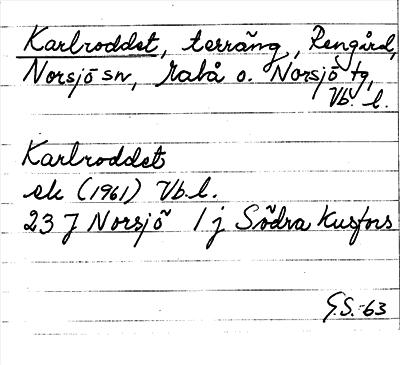 Karlroddet, terräng, Rengård,
Norsjö sn, Malå o. Norsjö tg,
Vb. l.
Karlroddet
ek (1961) Vb. l.
23 J Norsjö 1 j Södra Kusfors
G.S. -63